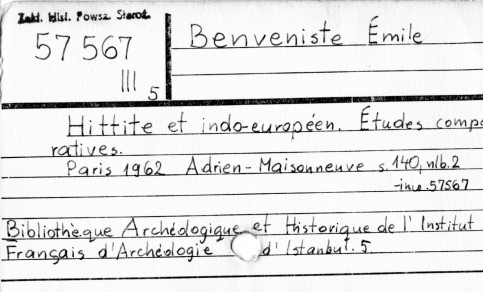 Zakł. Hist. Powsz. Staroż.
57567
III 5
Benveniste Émile
Hittite et indo-européen. Études compa
ratives.
Paris 1962 Adrien-Maisonneuve s. 140, nlb. 2
-inw. 57567
Bibliothèque Archéologique et Historique de l'Institut
Français d'Archéologie d'Istanbul. 5.